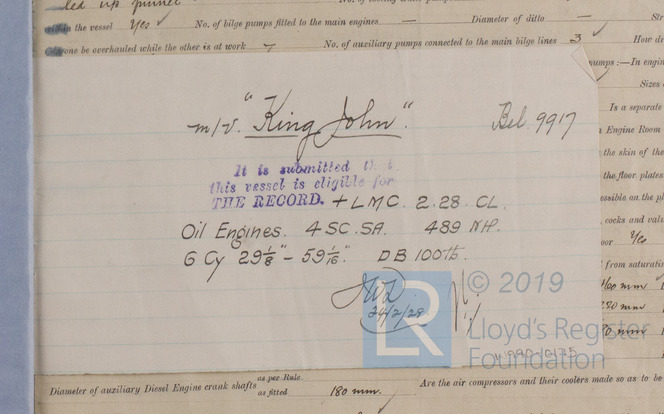 led up funnel
within the vessel Yes No. of bilge pumps fitted to the main engines — Diameter of ditto — Str
one be overhauled while the other is at work No. of auxiliary pumps connected to the main bilge lines 3 How de
umps :—In engin
Sizes
m/v. "King John". Bel. 9917
Is a separate
Engine Room
the skin of the
It is submitted that
this vessel is eligible for
the floor plates
THE RECORD. + LMC. 2.28. CL.
essible on the pl
cocks and valu
Oil Engines. 4 SC. SA. 489 NH.
oor Yes
6 Cy 29 1/8" - 59 1/16". DB 100 lb.
from saturatio
24/2/28
© 2019
LR
Lloyd's Register
Foundation
Diameter of auxiliary Diesel Engine crank shafts as per Rule
as fitted 180 mm. Are the air compressors and their coolers made so as to be